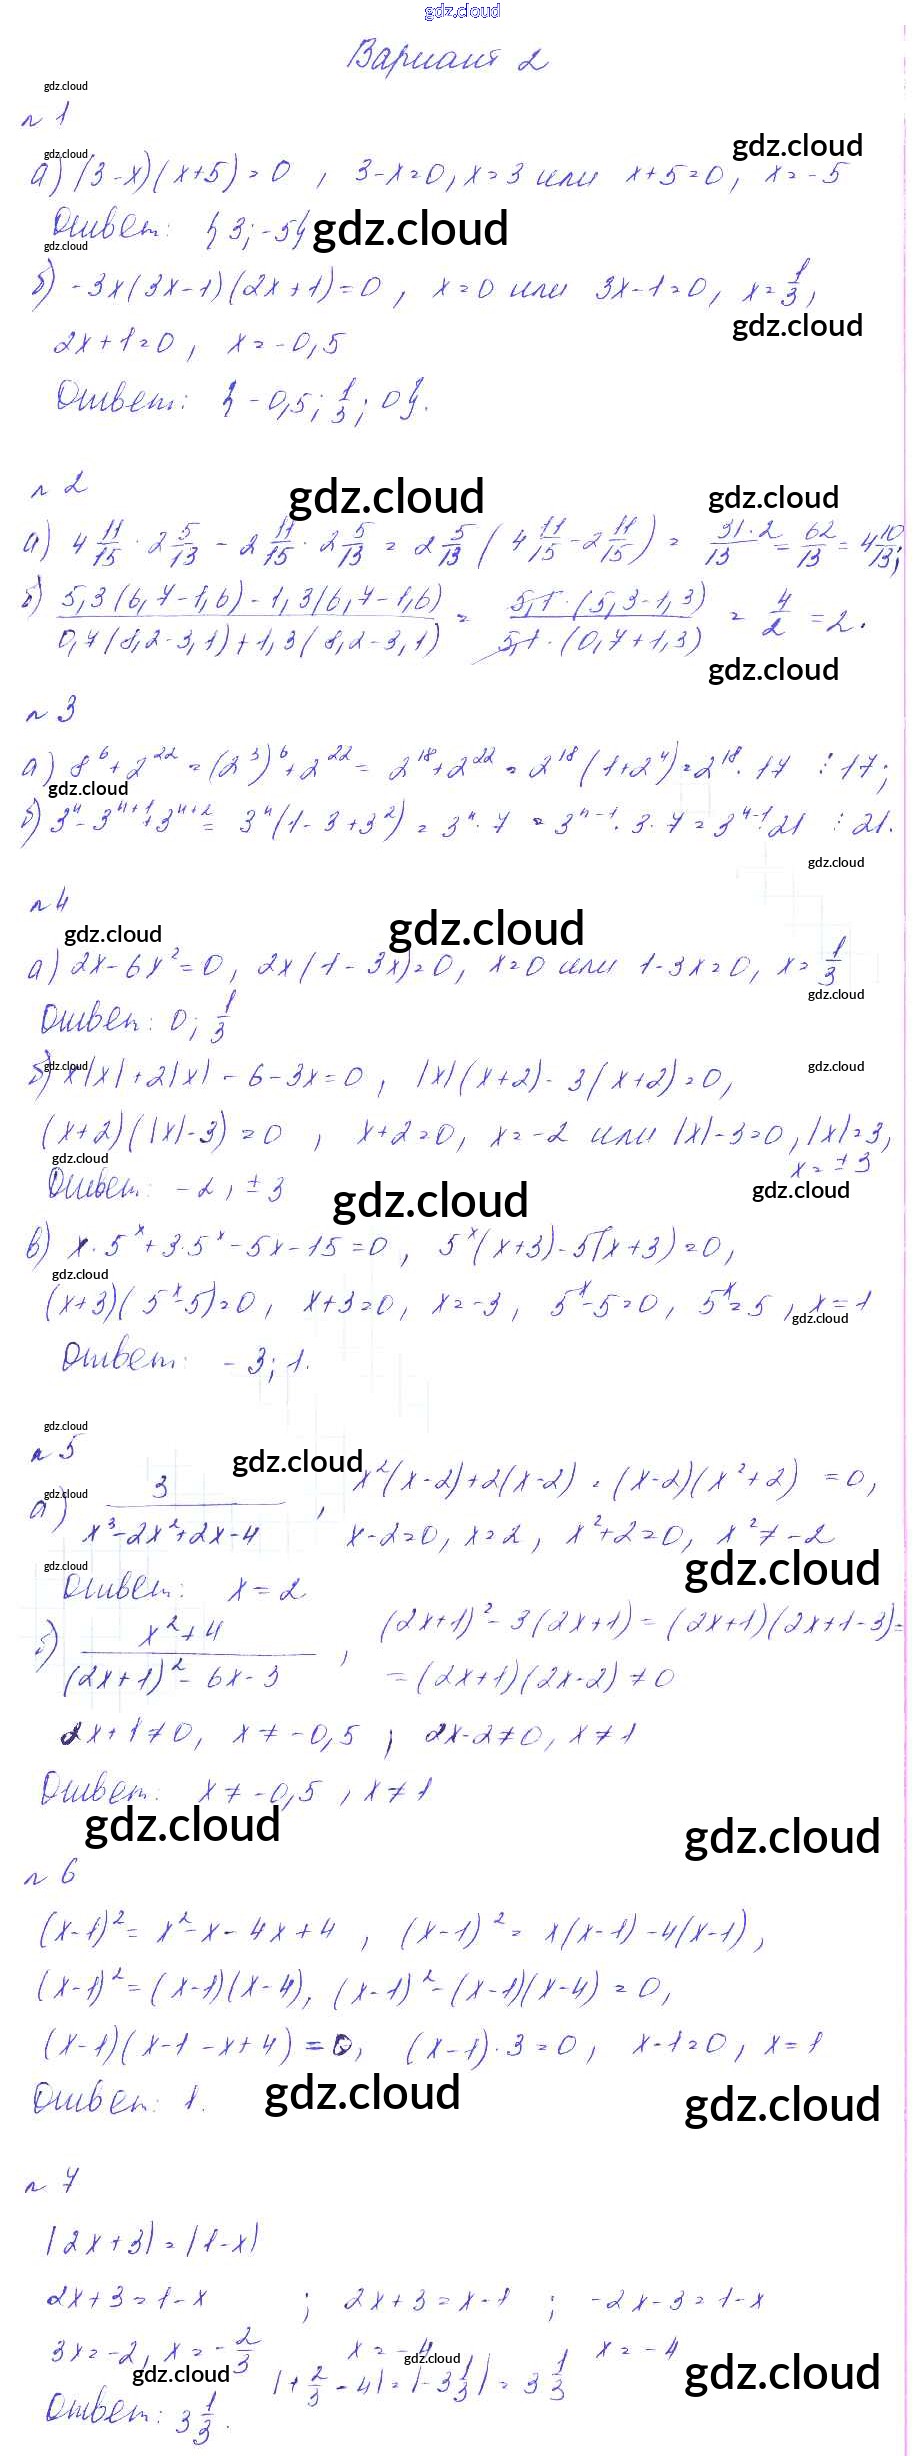 gdz.cloud
Вариант 2
gdz.cloud
n 1
gdz.cloud gdz.cloud
а) (3-x)(x+5)=0 , 3-x=0, x=3 или x+5=0, x=-5
Ответ: {3;-5} gdz.cloud
gdz.cloud
б) -3x(3x-1)(2x+1)=0 , x=0 или 3x-1=0, x=1/3,
2x+1=0 , x=-0,5 gdz.cloud
Ответ: {-0,5; 1/3; 0}.
n 2 gdz.cloud gdz.cloud
а) 4 11/15 · 2 5/13 - 2 11/15 · 2 5/13 = 2 5/13 (4 11/15 - 2 11/15) = 31·2/13 = 62/13 = 4 10/13;
б) (5,3(6,7-1,6)-1,3(6,7-1,6))/(0,7(8,2-3,1)+1,3(8,2-3,1)) = (5,1·(5,3-1,3))/(5,1·(0,7+1,3)) = 4/2 = 2.
gdz.cloud
n 3
а) 8^6+2^22=(2^3)^6+2^22= 2^18+2^22=2^18(1+2^4)=2^18·17 ⋮17;
gdz.cloud
б) 3^n-3^n+1+3^n+2= 3^n(1-3+3^2)=3^n·7 =3^n-1·3·7=3^n-1·21 ⋮21.
gdz.cloud
n 4
gdz.cloud gdz.cloud
а) 2x-6x²=0, 2x(1-3x)=0, x=0 или 1-3x=0, x=1/3
gdz.cloud
Ответ: 0; 1/3
gdz.cloud gdz.cloud
б) x|x|+2|x|-6-3x=0 , |x|(x+2)-3(x+2)=0,
(x+2)(|x|-3)=0 , x+2=0, x=-2 или |x|-3=0, |x|=3,
gdz.cloud x=±3
Ответ: -2, ±3 gdz.cloud gdz.cloud
в) x·5^x+3·5^x-5x-15=0 , 5^x(x+3)-5(x+3)=0,
gdz.cloud
(x+3)(5^x-5)=0, x+3=0, x=-3, 5^x-5=0, 5^x=5, x=1
gdz.cloud
Ответ: -3; 1.
gdz.cloud
n 5 gdz.cloud
gdz.cloud
а) 3/(x³-2x²+2x-4) , x²(x-2)+2(x-2)=(x-2)(x²+2) =0,
x-2=0, x=2, x²+2=0, x²≠-2
gdz.cloud gdz.cloud
Ответ: x=2
б) (x²+4)/((2x+1)²-6x-3) , (2x+1)²-3(2x+1)=(2x+1)(2x+1-3)=
=(2x+1)(2x-2)≠0
2x+1≠0, x≠-0,5 ; 2x-2≠0, x≠1
Ответ: x≠-0,5 , x≠1
gdz.cloud gdz.cloud
n 6
(x-1)²=x²-x-4x+4 , (x-1)²=x(x-1)-4(x-1),
(x-1)²=(x-1)(x-4), (x-1)²-(x-1)(x-4)=0,
(x-1)(x-1-x+4)=0, (x-1)·3=0, x-1=0, x=1
Ответ: 1. gdz.cloud gdz.cloud
n 7
|2x+3|=|1-x|
2x+3=1-x ; 2x+3=x-1 ; -2x-3=1-x
3x=-2, x=-2/3 x=-4 x=-4
gdz.cloud gdz.cloud gdz.cloud
|+2/3-4|=|-3 1/3|=3 1/3
Ответ: 3 1/3.